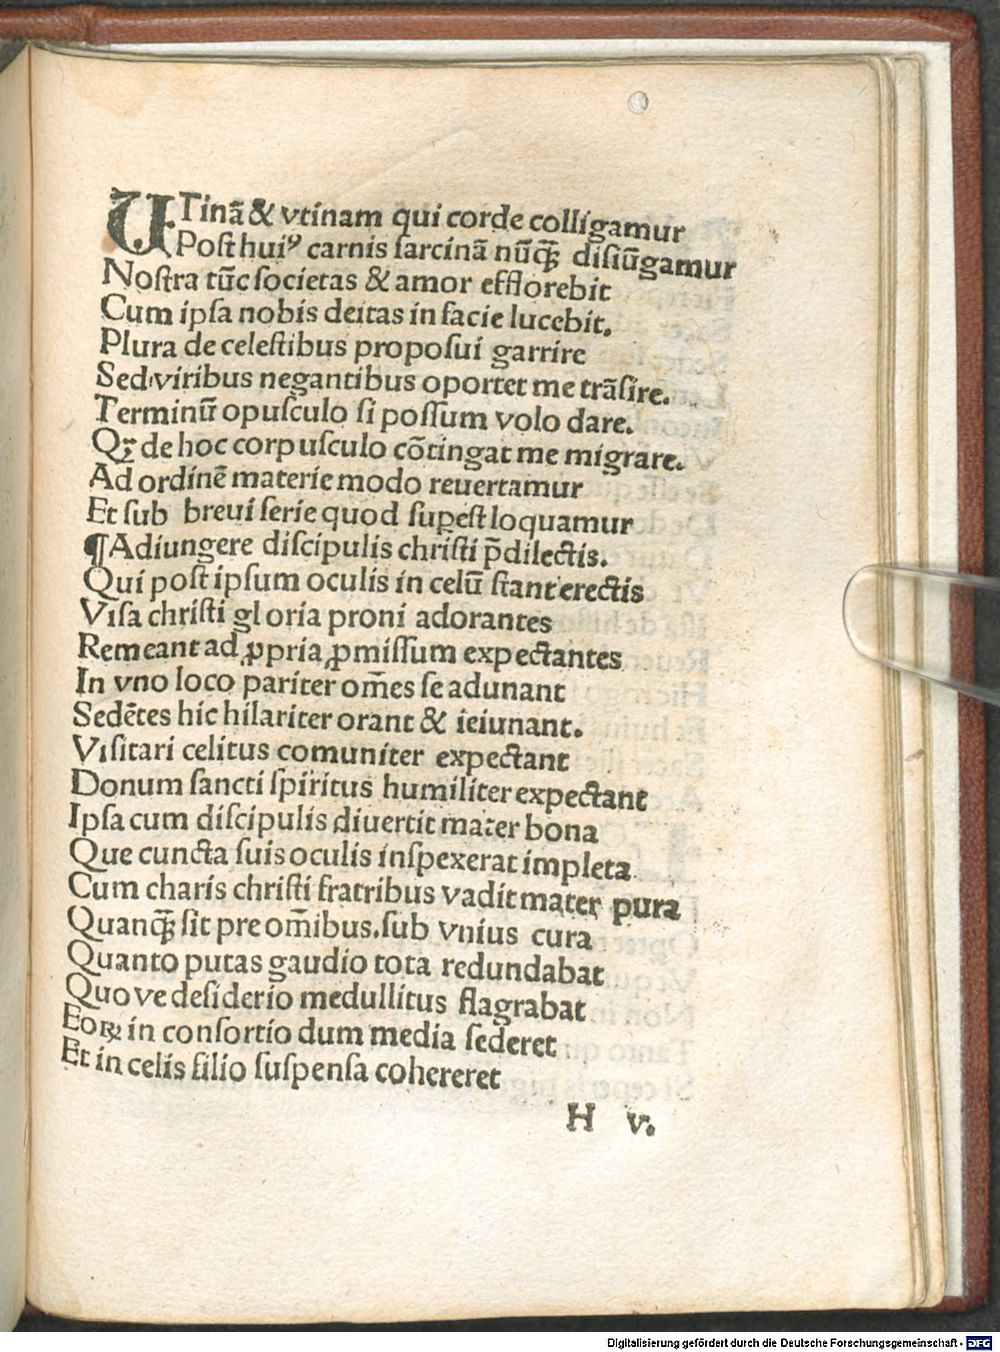 UTinã & vtinam qui corde colligamur
Post huiꝰ carnis ſarcinã nũq̃ꝫ diſiũgamur
Noſtra tũc ſocietas & amor efflorebit
Cum ipſa nobis deitas in facie lucebit.
Plura de celeſtibus propoſui garrire
Sed viribus negantibus oportet me trãſire.
Terminũ opuſculo ſi poſſum volo dare.
Qꝫ de hoc corpuſculo cõtingat me migrare.
Ad ordinẽ materie modo reuertamur
Et ſub breui ſerie quod ſuꝑeſt loquamur
¶Adiungere diſcipulis chriſti p̃dilectis.
Qui poſt ipſum oculis in celũ ſtant erectis
Viſa chriſti gloria proni adorantes
Remeant ad ꝓpria ꝓmiſſum expectantes
In vno loco pariter om̃es ſe adunant
Sedẽtes hic hilariter orant & ieiunant.
Viſitari celitus comuniter expectant
Donum ſancti ſpiritus humiliter expectant
Ipſa cum diſcipulis diuertit mater bona
Que cuncta ſuis oculis inſpexerat impleta
Cum charis chriſti fratribus vadit mater pura
Quanq̃ꝫ ſit pre om̃ibus.ſub vnius cura
Quanto putas gaudio tota redundabat
Quo ve deſiderio medullitus flagrabat
Eoꝝ in conſortio dum media ſederet
Et in celis filio ſuſpenſa cohereret
H v.
Digitalisierung gefördert durch die Deutsche Forschungsgemeinschaft - DFG